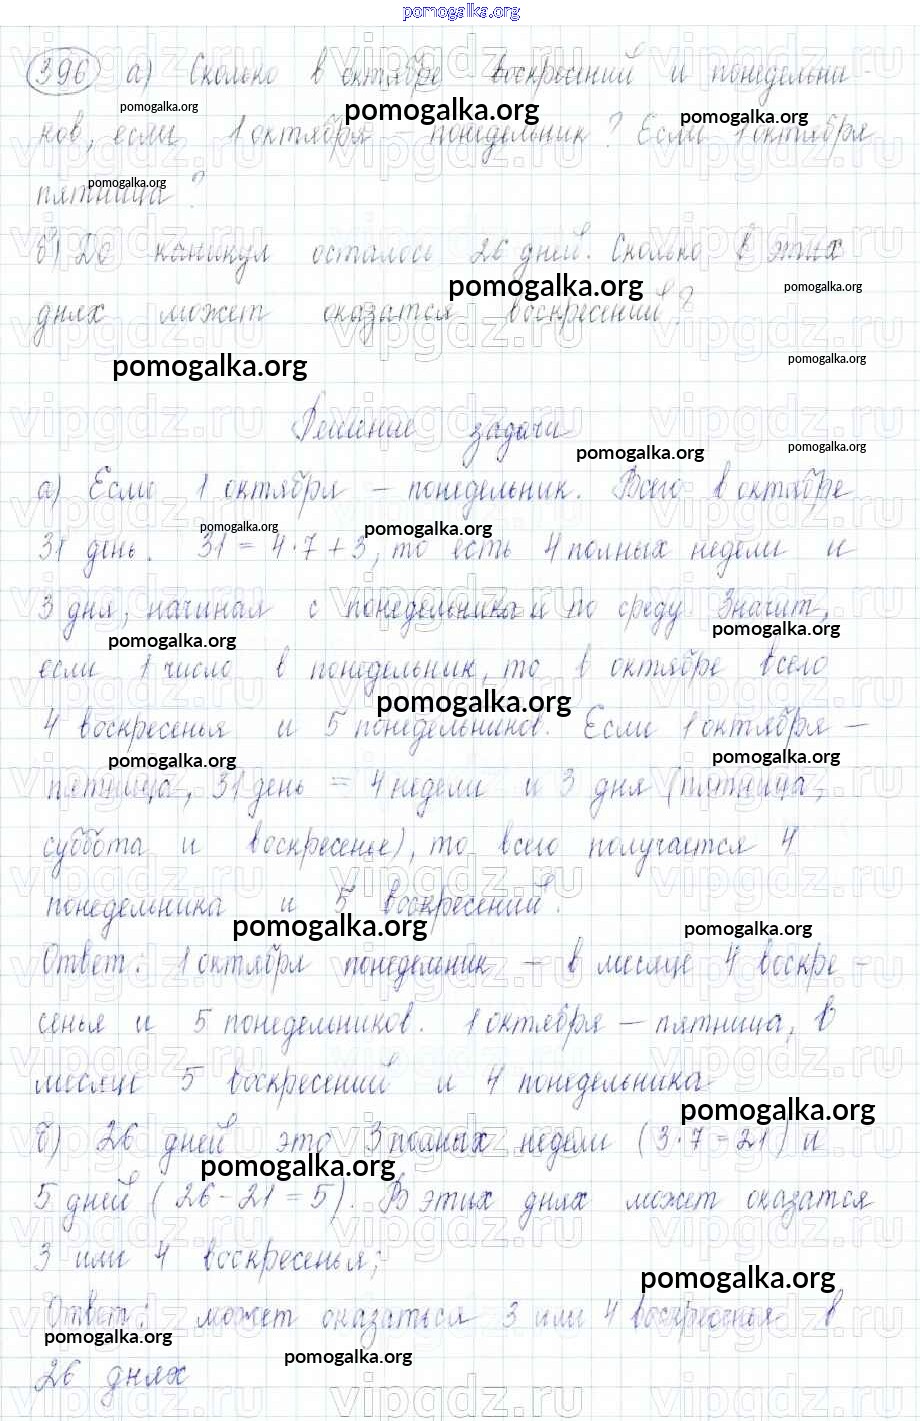 pomogalka.org
396 а) Сколько в октябре воскресений и понедельни-
pomogalka.org pomogalka.org pomogalka.org
ков, если 1 октября – понедельник? Если 1 октября
pomogalka.org
пятница?
б) До каникул осталось 26 дней. Сколько в этих
pomogalka.org pomogalka.org
днях может оказатся воскресений?
pomogalka.org pomogalka.org
Решение задачи
pomogalka.org pomogalka.org
а) Если 1 октября – понедельник. Всего в октябре
pomogalka.org pomogalka.org
31 день. 31 = 4·7+3, то есть 4 полных недели и
3 дня, начиная с понедельника и по среду. Значит,
pomogalka.org pomogalka.org
если 1 число в понедельник, то в октябре всего
pomogalka.org
4 воскресенья и 5 понедельников. Если 1 октября –
pomogalka.org pomogalka.org
пятница, 31 день = 4 недели и 3 дня (пятница,
суббота и воскресенье), то всего получается 4
понедельника и 5 воскресений.
pomogalka.org pomogalka.org
Ответ: 1 октября понедельник – в месяце 4 воскре-
сенья и 5 понедельников. 1 октября – пятница, в
месяце 5 воскресений и 4 понедельника
pomogalka.org
б) 26 дней это 3 полных недели (3·7=21) и
pomogalka.org
5 дней (26-21=5). В этих днях может оказатся
3 или 4 воскресенья;
pomogalka.org
Ответ: может оказаться 3 или 4 воскресенья в
pomogalka.org pomogalka.org
26 днях